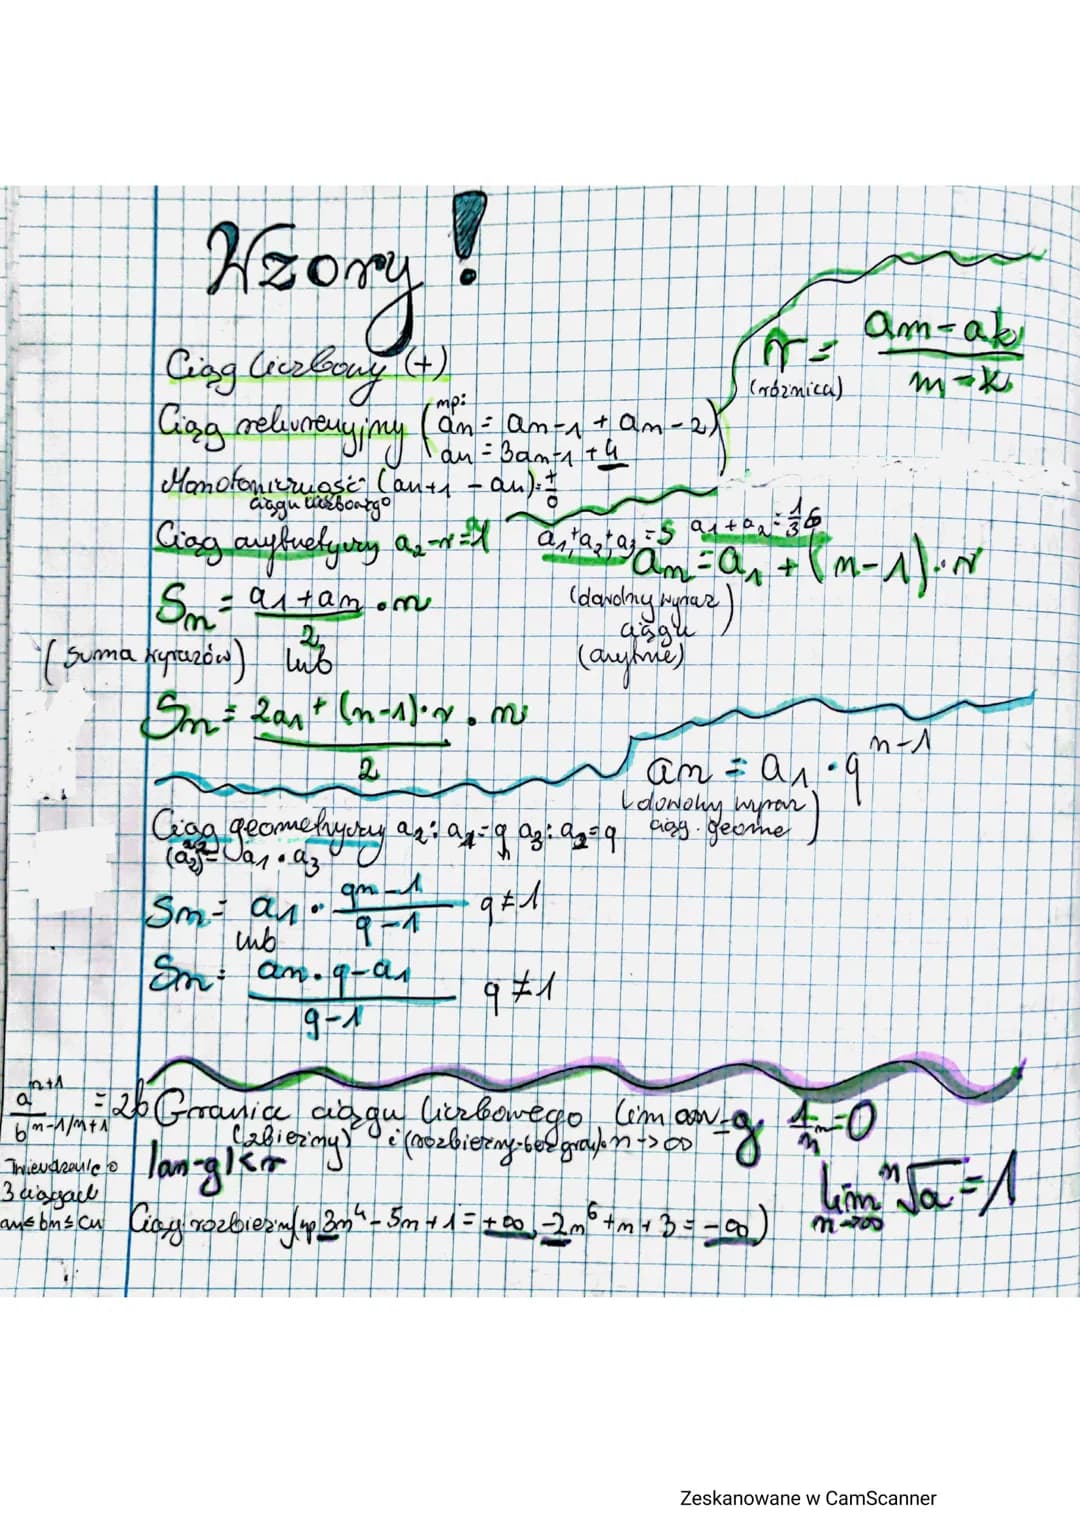 Wzory!
Ciąg liczbowy (+)
r = am-ak / m-k
(różnica)
Ciąg rekurencyjny (np: an = an-1 + an-2)
an = 3an-1 + 4
Monotoniczność (an+1 - an) = + - 0
ciągu liczbowego
Ciąg arytmetyczny a2-r=a1
a1+a2+a3=S a1+a2=
an = a1 + (n-1)·r
(dowolny wyraz
ciągu
(arytme)
Sn = a1+an / 2 · n
(suma wyrazów) lub
Sn = 2a1+(n-1)·r / 2 · n
an = a1·q^n-1
(dowolny wyraz
ciąg. geome)
Ciąg geometryczny a2:a1=q a3:a2=q
a1·a3
Sn = a1 · qn-1 / q-1 q≠1
lub
Sn = an·q-a1 / q-1 q≠1
Granica ciągu liczbowego lim an=g 1/n=0
n→∞
(zbieżny) i (rozbieżny-bez gran)
|an-g|<r
lim n√a = 1
n→∞
3 ciągach
an≤bn≤cn
Ciąg rozbieżny(np 3n^4-5n+1=+∞, -2n^6+n+3=-∞)
Zeskanowane w CamScanner